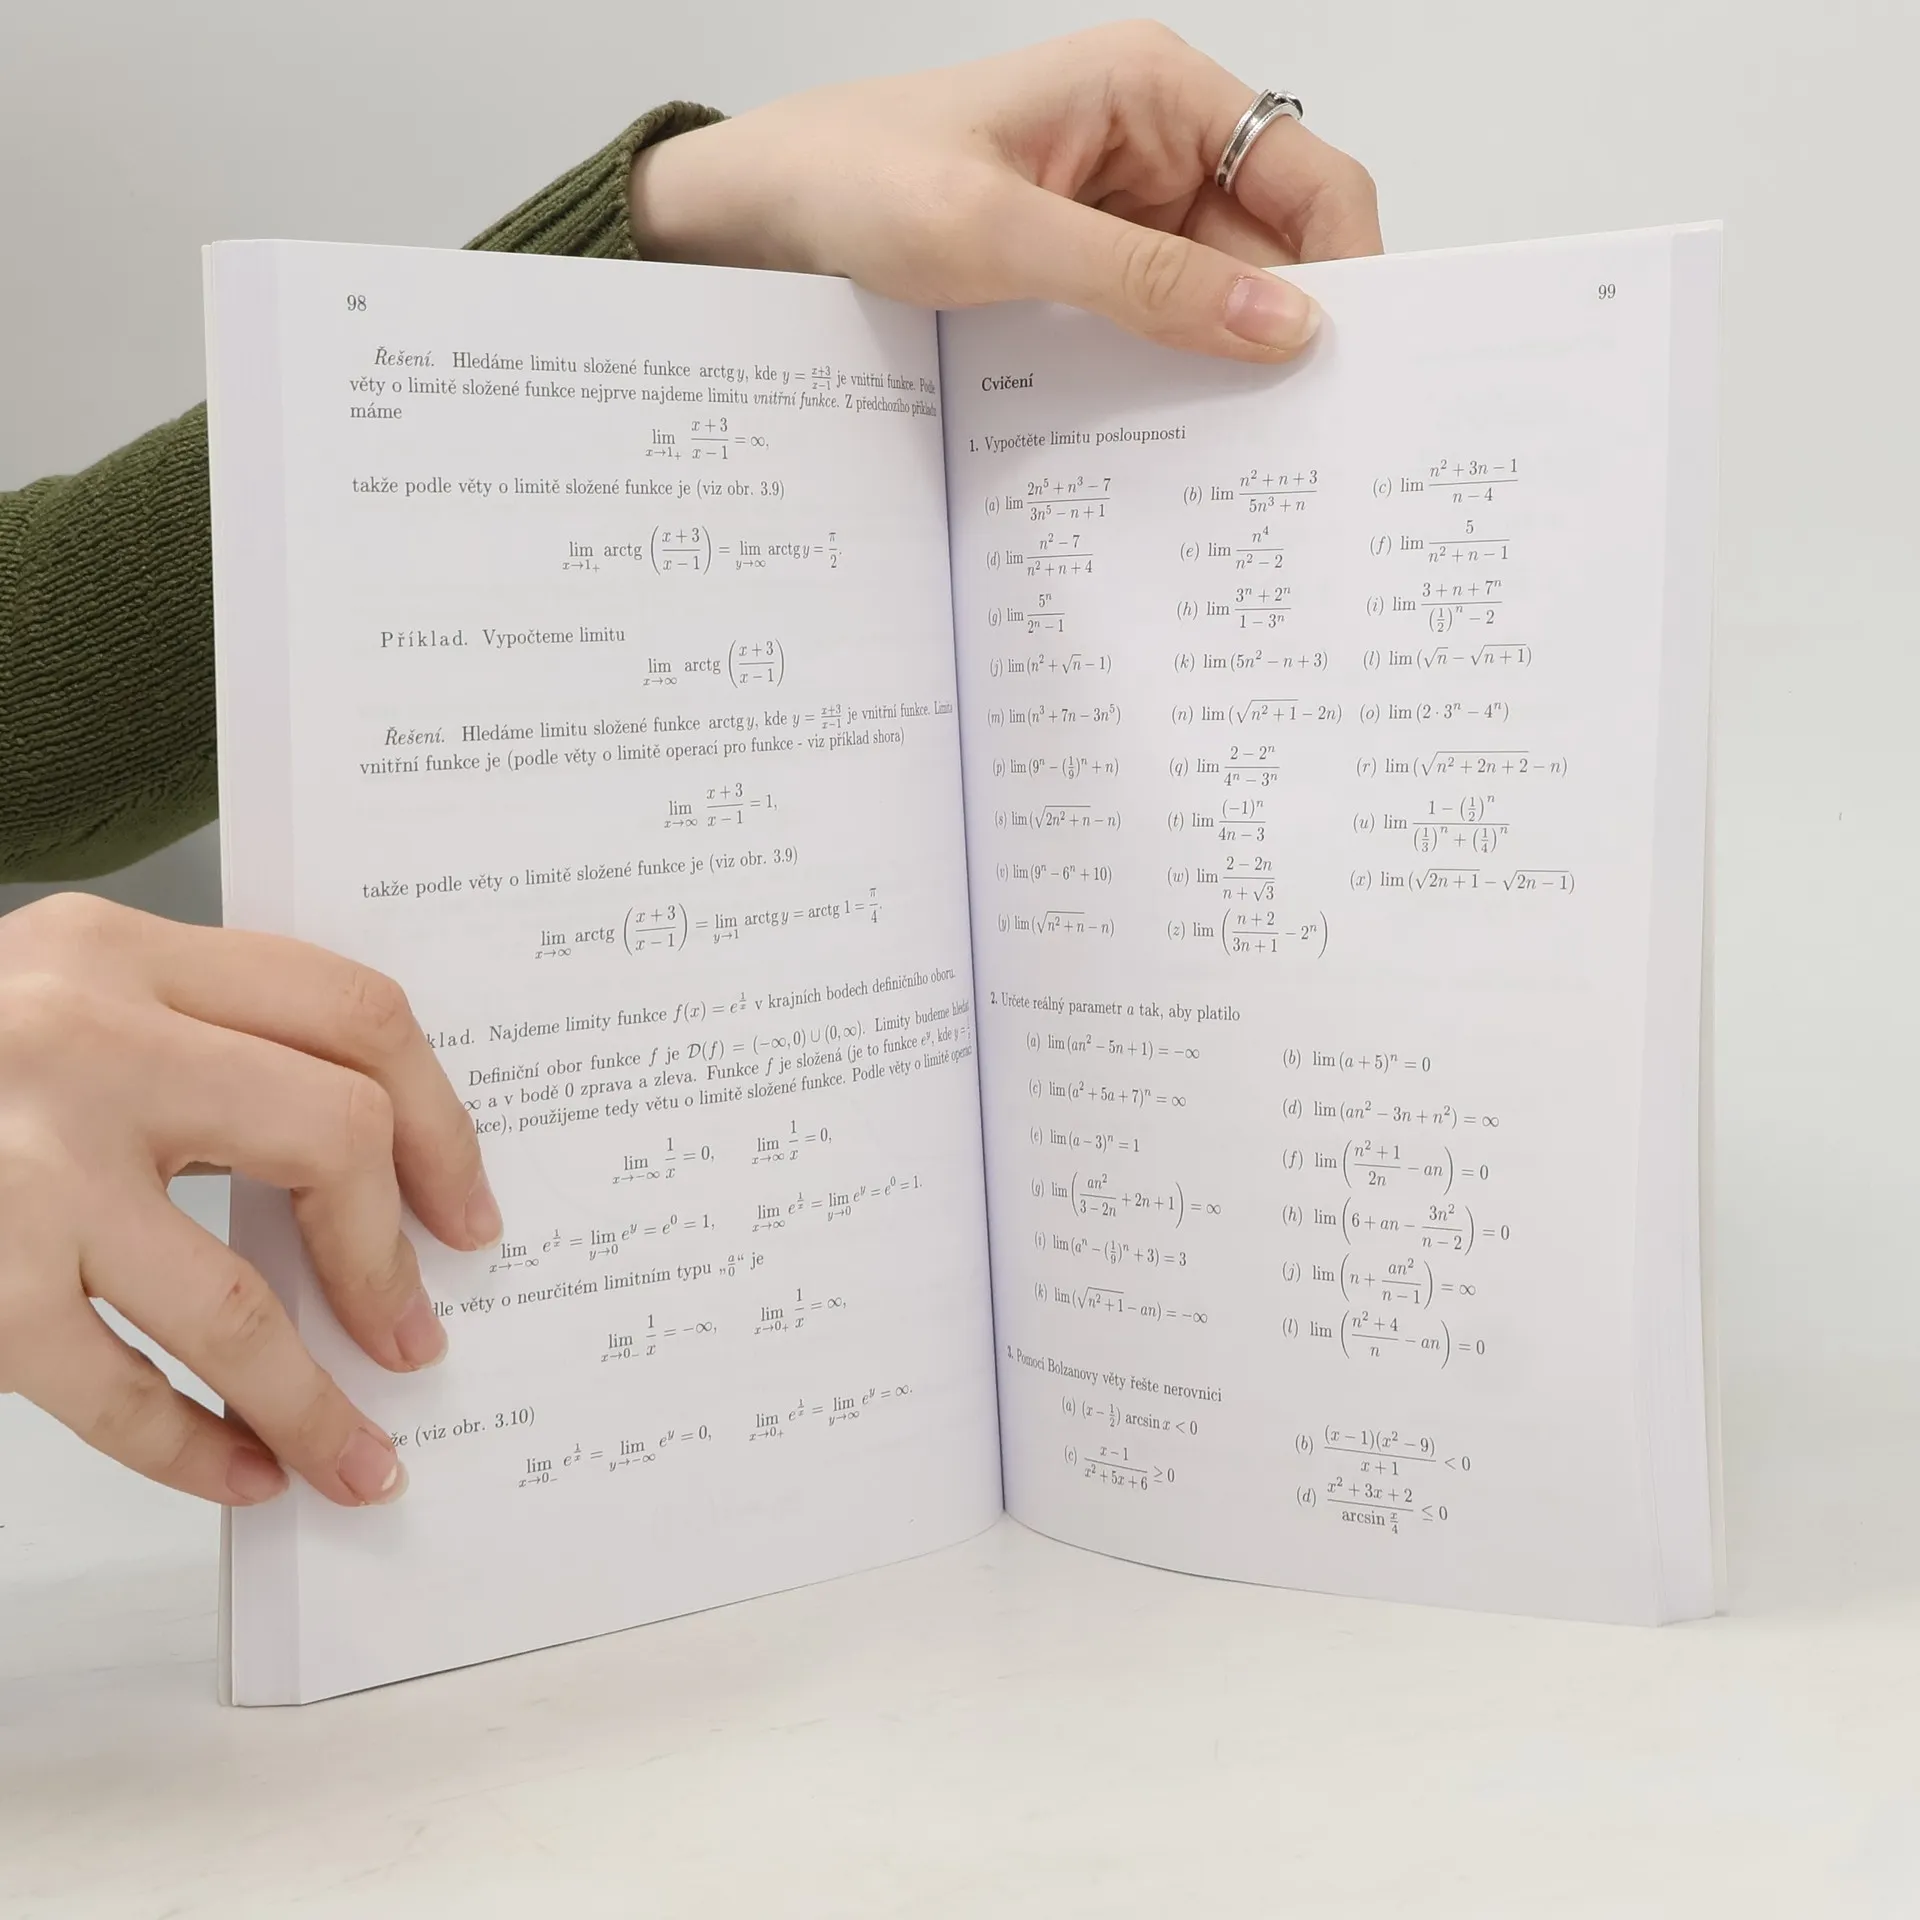 98
Řešení. Hledáme limitu složené funkce arctg y, kde y = \frac{x+3}{x−1} je vnitřní funkce. Podle
věty o limitě složené funkce nejprve najdeme limitu vnitřní funkce. Z předchozího příkladu
máme
lim_{x→1+} \frac{x+3}{x−1} = ∞,
takže podle věty o limitě složené funkce je (viz obr. 3.9)
lim_{x→1+} arctg (\frac{x+3}{x−1}) = lim_{y→∞} arctg y = \frac{π}{2}.
Příklad. Vypočteme limitu
lim_{x→∞} arctg (\frac{x+3}{x−1})
Řešení. Hledáme limitu složené funkce arctg y, kde y = \frac{x+3}{x−1} je vnitřní funkce. Limita
vnitřní funkce je (podle věty o limitě operací pro funkce - viz příklad shora)
lim_{x→∞} \frac{x+3}{x−1} = 1,
takže podle věty o limitě složené funkce je (viz obr. 3.9)
lim_{x→∞} arctg (\frac{x+3}{x−1}) = lim_{y→1} arctg y = arctg 1 = \frac{π}{4}.
klad. Najdeme limity funkce f(x) = e^{\frac{1}{x}} v krajních bodech definičního oboru.
Definiční obor funkce f je D(f) = (−∞, 0) ∪ (0, ∞). Limity budeme hledat
∞ a v bodě 0 zprava a zleva. Funkce f je složená (je to funkce e^y, kde y = \frac{1}{x}
kce), použijeme tedy větu o limitě složené funkce. Podle věty o limitě operací
lim_{x→−∞} \frac{1}{x} = 0, lim_{x→∞} \frac{1}{x} = 0,
lim_{x→−∞} e^{\frac{1}{x}} = lim_{y→0} e^y = e^0 = 1, lim_{x→∞} e^{\frac{1}{x}} = lim_{y→0} e^y = e^0 = 1.
dle věty o neurčitém limitním typu „\frac{a}{0}“ je
lim_{x→0−} \frac{1}{x} = −∞, lim_{x→0+} \frac{1}{x} = ∞,
že (viz obr. 3.10)
lim_{x→0−} e^{\frac{1}{x}} = lim_{y→−∞} e^y = 0, lim_{x→0+} e^{\frac{1}{x}} = lim_{y→∞} e^y = ∞.
99
Cvičení
1. Vypočtěte limitu posloupnosti
(a) lim \frac{2n^5 + n^3 − 7}{3n^5 − n + 1} (b) lim \frac{n^2 + n + 3}{5n^3 + n} (c) lim \frac{n^2 + 3n − 1}{n − 4}
(d) lim \frac{n^2 − 7}{n^2 + n + 4} (e) lim \frac{n^4}{n^2 − 2} (f) lim \frac{5}{n^2 + n − 1}
(g) lim \frac{5^n}{2^n − 1} (h) lim \frac{3^n + 2^n}{1 − 3^n} (i) lim \frac{3 + n + 7^n}{(\frac{1}{2})^n − 2}
(j) lim (n^2 + √n − 1) (k) lim (5n^2 − n + 3) (l) lim (√n − √{n + 1})
(m) lim (n^3 + 7n − 3n^5) (n) lim (√{n^2 + 1} − 2n) (o) lim (2 · 3^n − 4^n)
(p) lim (9^n − (\frac{1}{9})^n + n) (q) lim \frac{2 − 2^n}{4^n − 3^n} (r) lim (√{n^2 + 2n + 2} − n)
(s) lim (√{2n^2 + n} − n) (t) lim \frac{(−1)^n}{4n − 3} (u) lim \frac{1 − (\frac{1}{2})^n}{(\frac{1}{3})^n + (\frac{1}{4})^n}
(v) lim (9^n − 6^n + 10) (w) lim \frac{2 − 2n}{n + √3} (x) lim (√{2n + 1} − √{2n − 1})
(y) lim (√{n^2 + n} − n) (z) lim (\frac{n + 2}{3n + 1} − 2^n)
2. Určete reálný parametr a tak, aby platilo
(a) lim (an^2 − 5n + 1) = −∞ (b) lim (a + 5)^n = 0
(c) lim (a^2 + 5a + 7)^n = ∞ (d) lim (an^2 − 3n + n^2) = ∞
(e) lim (a − 3)^n = 1 (f) lim (\frac{n^2 + 1}{2n} − an) = 0
(g) lim (\frac{an^2}{3 − 2n} + 2n + 1) = ∞ (h) lim (6 + an − \frac{3n^2}{n − 2}) = 0
(i) lim (a^n − (\frac{1}{9})^n + 3) = 3 (j) lim (n + \frac{an^2}{n − 1}) = ∞
(k) lim (√{n^2 + 1} − an) = −∞ (l) lim (\frac{n^2 + 4}{n} − an) = 0
3. Pomocí Bolzanovy věty řešte nerovnici
(a) (x − \frac{1}{2}) arcsin x < 0 (b) \frac{(x − 1)(x^2 − 9)}{x + 1} < 0
(c) \frac{x − 1}{x^2 + 5x + 6} ≥ 0 (d) \frac{x^2 + 3x + 2}{arcsin \frac{x}{4}} ≤ 0